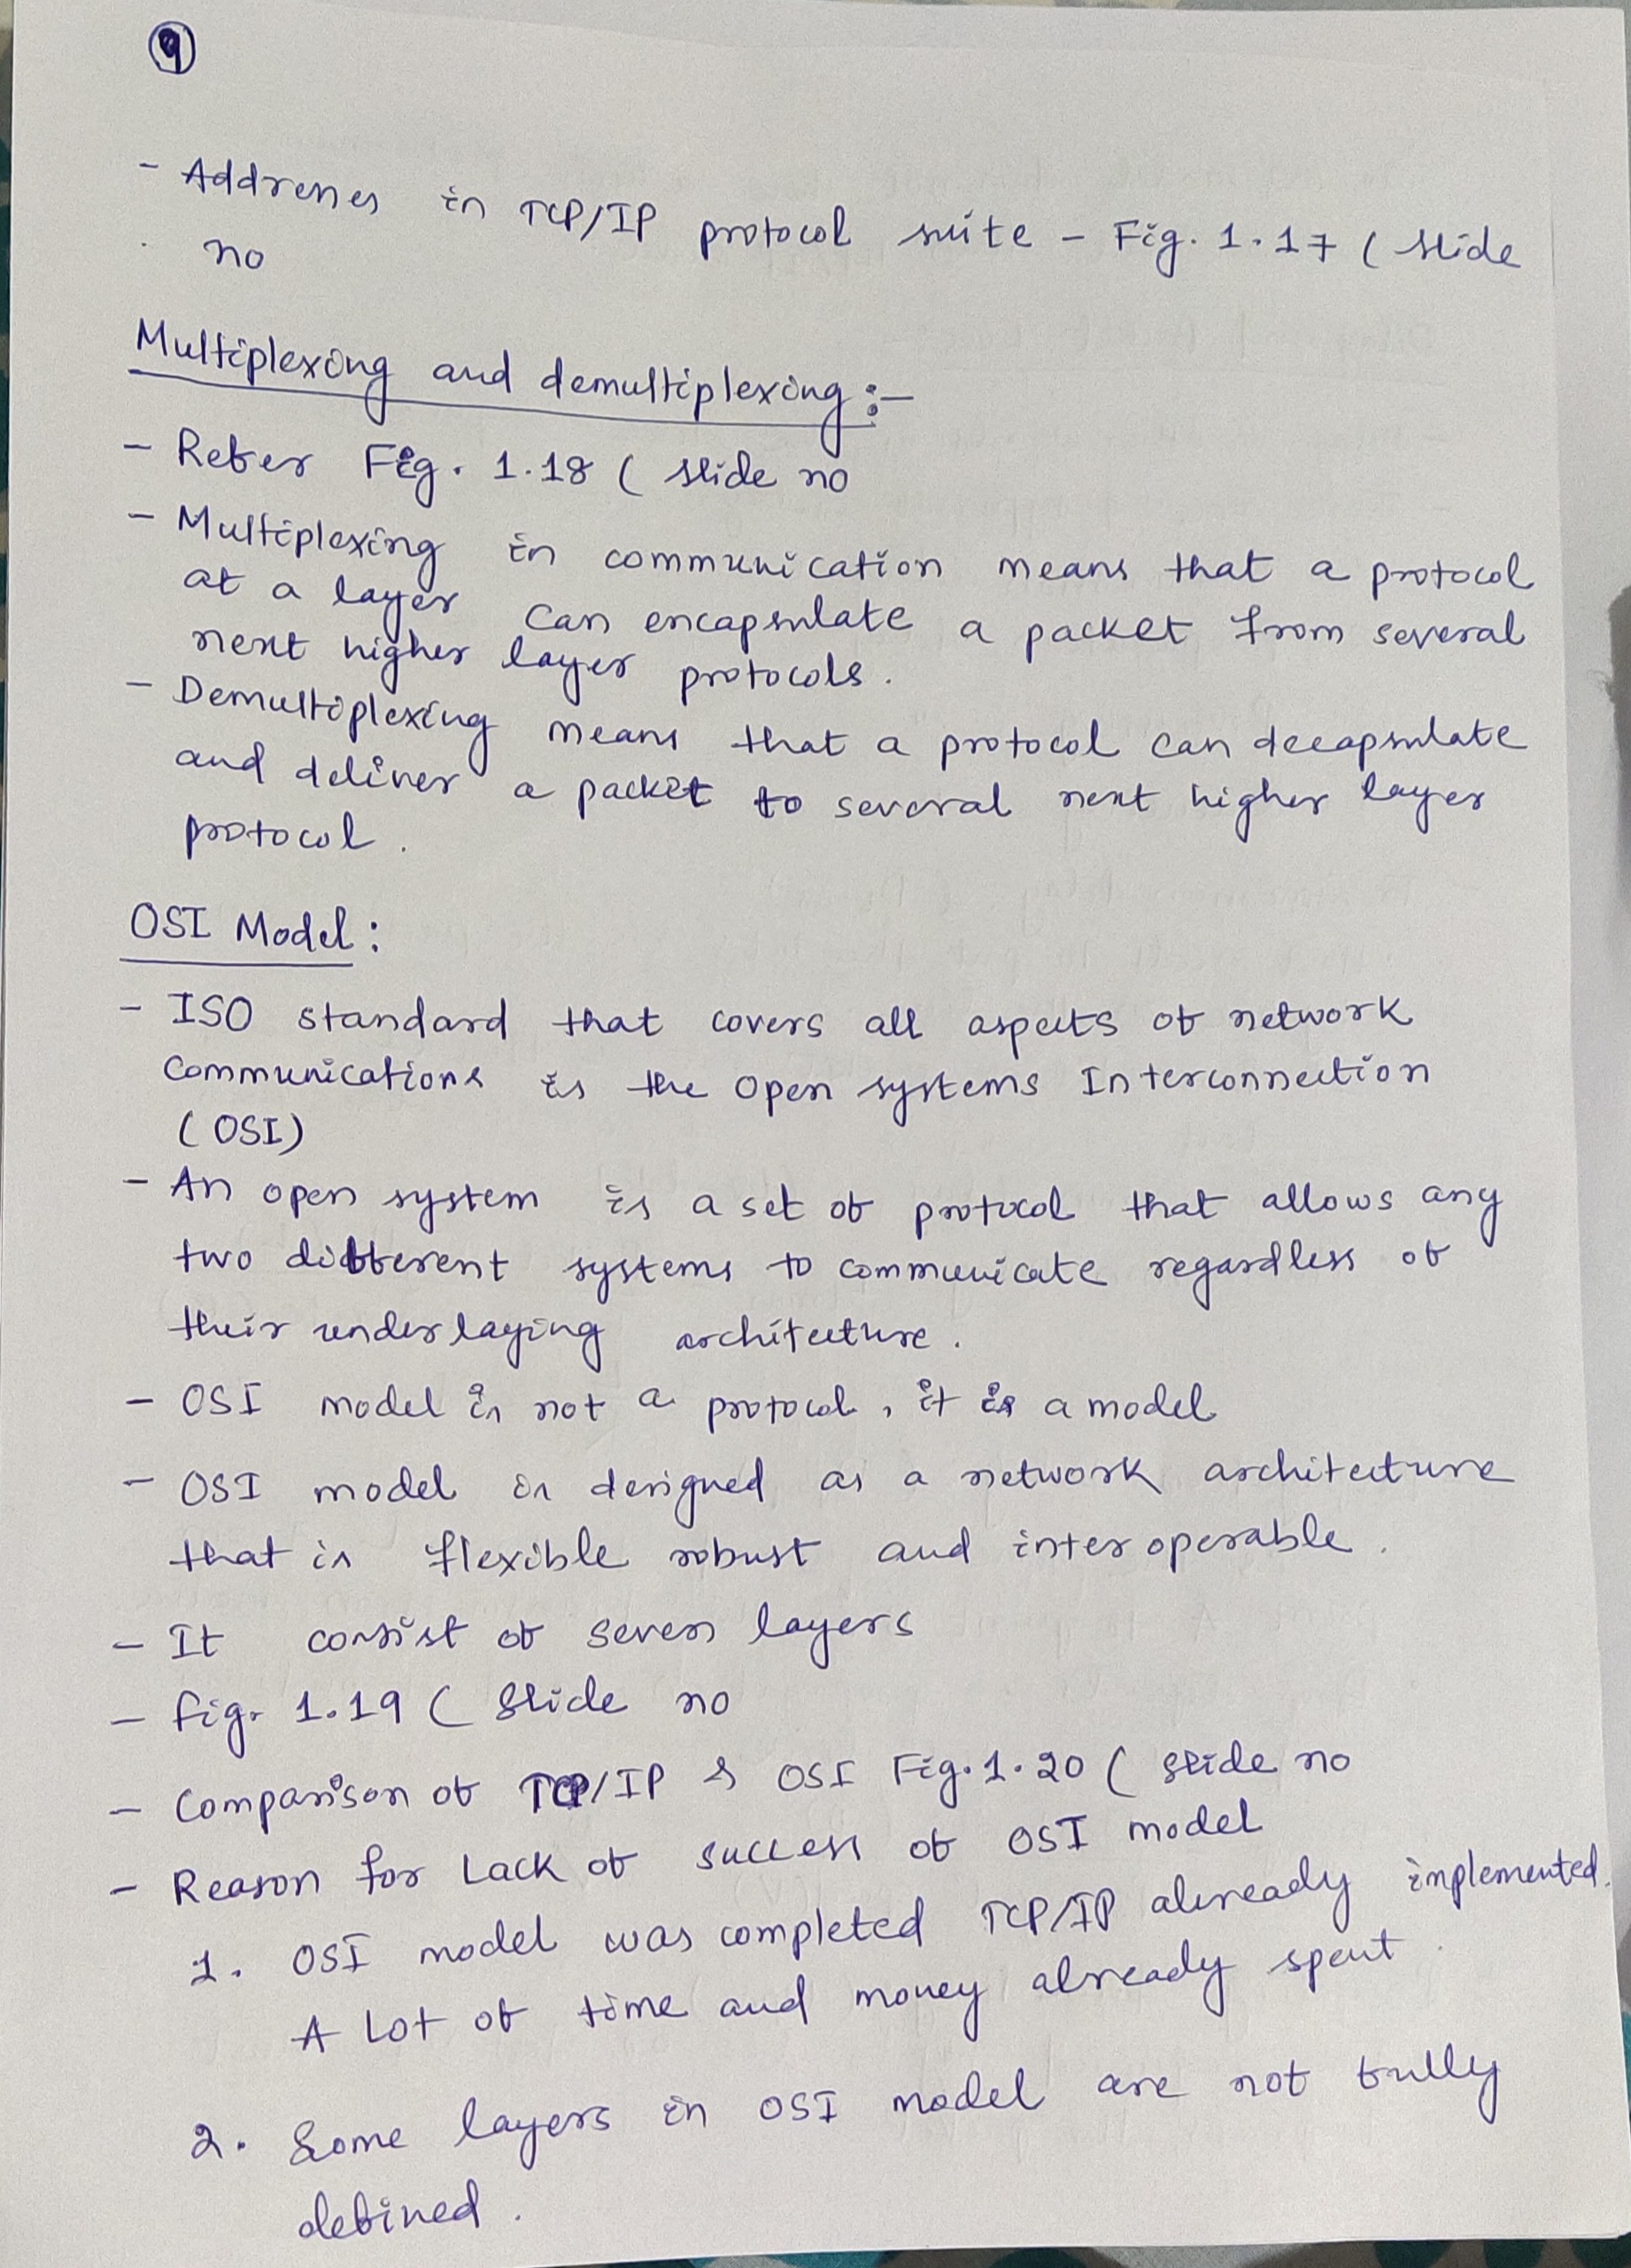 9
- Addresses in TCP/IP protocol suite - Fig. 1.17 ( slide
no
Multiplexing and demultiplexing :-
- Refer Fig. 1.18 ( slide no
- Multiplexing in communication means that a protocol
at a layer can encapsulate a packet from several
next higher layer protocols.
- Demultiplexing means that a protocol can decapsulate
and deliver a packet to several next higher layer
protocol.
OSI Model :
- ISO standard that covers all aspects of network
communications is the open systems Interconnection
( OSI)
- An open system is a set of protocol that allows any
two different systems to communicate regardless of
their underlaying architecture.
- OSI model is not a protocol, it is a model
- OSI model is designed as a network architecture
that is flexible robust and interoperable.
- It consist of seven layers
- fig. 1.19 ( Slide no
- Comparison of TCP/IP & OSI Fig. 1.20 ( slide no
- Reason for Lack of success of OSI model
1. OSI model was completed TCP/IP already implemented.
A Lot of time and money already spent.
2. Some layers in OSI model are not fully
defined.